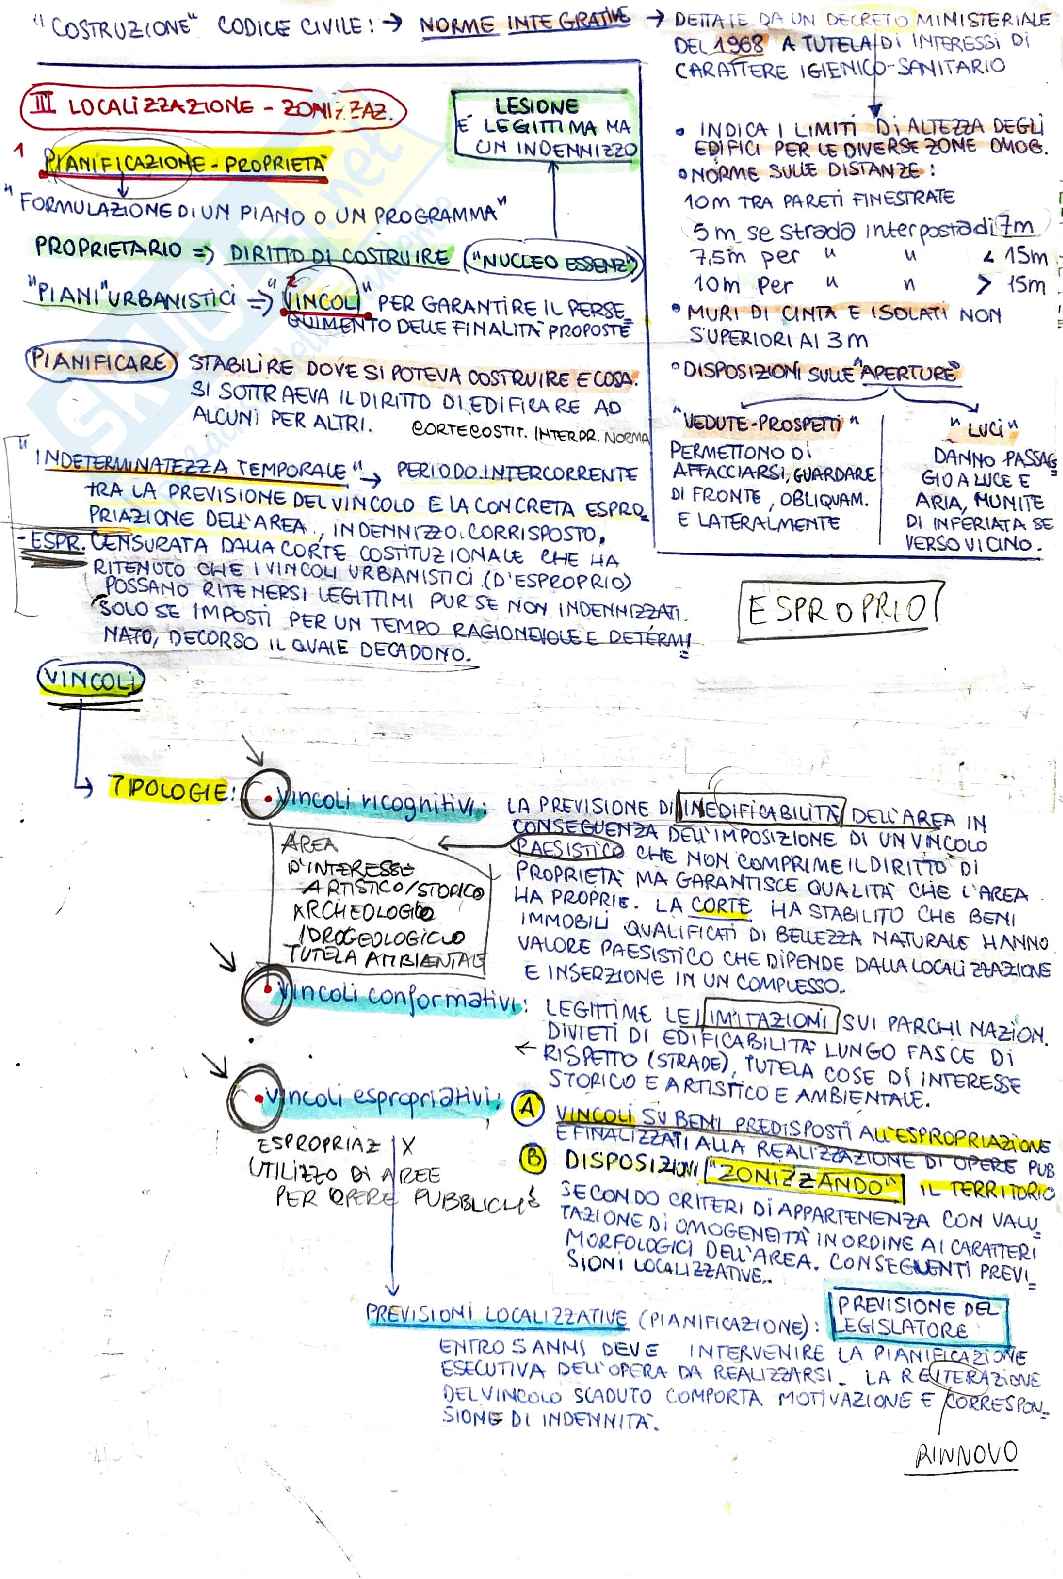 "COSTRUZIONE" CODICE CIVILE: → NORME INTEGRATIVE → DETTATE DA UN DECRETO MINISTERIALE
DEL 1968 A TUTELA DI INTERESSI DI
CARATTERE IGIENICO-SANITARIO
• INDICA I LIMITI DI ALTEZZA DEGLI
EDIFICI PER LE DIVERSE ZONE OMOG.
• NORME SULLE DISTANZE:
10m TRA PARETI FINESTRATE
5 m se strada interposta di 7m
7,5m per " " < 15m
10m Per " " > 15m
• MURI DI CINTA E ISOLATI NON
SUPERIORI AI 3 m
• DISPOSIZIONI SULLE "APERTURE"
"VEDUTE-PROSPETTI"
PERMETTONO DI
AFFACCIARSI, GUARDARE
DI FRONTE, OBLIQUAM.
E LATERALMENTE
"LUCI"
DANNO PASSAG
GIO A LUCE E
ARIA, MUNITE
DI INFERIATA SE
VERSO VICINO.
III LOCALIZZAZIONE - ZONIZZAZ.
LESIONE
E' LEGITTIMA MA
UN INDENNIZZO
1 PIANIFICAZIONE - PROPRIETÀ
"FORMULAZIONE DI UN PIANO O UN PROGRAMMA"
PROPRIETARIO => DIRITTO DI COSTRUIRE ("NUCLEO ESSENZ")
"PIANI" URBANISTICI => "2 VINCOLI" PER GARANTIRE IL PERSE
GUIMENTO DELLE FINALITÀ PROPOSTE
PIANIFICARE STABILIRE DOVE SI POTEVA COSTRUIRE E COSA.
SI SOTTRAEVA IL DIRITTO DI EDIFICARE AD
ALCUNI PER ALTRI. CORTE COSTIT. INTERPR. NORMA
"INDETERMINATEZZA TEMPORALE" → PERIODO INTERCORRENTE
TRA LA PREVISIONE DEL VINCOLO E LA CONCRETA ESPRO
PRIAZIONE DELL'AREA, INDENNIZZO CORRISPOSTO,
- ESPR. CENSURATA DALLA CORTE COSTITUZIONALE CHE HA
RITENUTO CHE I VINCOLI URBANISTICI (D'ESPROPRIO)
POSSANO RITENERSI LEGITTIMI PUR SE NON INDENNIZZATI
SOLO SE IMPOSTI PER UN TEMPO RAGIONEVOLE E DETERMI
NATO, DECORSO IL QUALE DECADONO.
ESPROPRIO
VINCOLI
TIPOLOGIE:
• vincoli ricognitivi: LA PREVISIONE DI INEDIFICABILITÀ DELL'AREA IN
CONSEGUENZA DELL'IMPOSIZIONE DI UN VINCOLO
PAESISTICO CHE NON COMPRIME IL DIRITTO DI
PROPRIETÀ MA GARANTISCE QUALITÀ CHE L'AREA
HA PROPRIE. LA CORTE HA STABILITO CHE BENI
IMMOBILI QUALIFICATI DI BELLEZZA NATURALE HANNO
VALORE PAESISTICO CHE DIPENDE DALLA LOCALIZZAZIONE
E INSERZIONE IN UN COMPLESSO.
AREA
D'INTERESSE
ARTISTICO/STORICO
ARCHEOLOGICO
IDROGEOLOGICO
TUTELA AMBIENTALE
• vincoli conformativi: LEGITTIME LE LIMITAZIONI SUI PARCHI NAZION.
DIVIETI DI EDIFICABILITÀ LUNGO FASCE DI
← RISPETTO (STRADE), TUTELA COSE DI INTERESSE
STORICO E ARTISTICO E AMBIENTALE.
• vincoli espropriativi: A VINCOLI SU BENI PREDISPOSTI ALL'ESPROPRIAZIONE
E FINALIZZATI ALLA REALIZZAZIONE DI OPERE PUB
B DISPOSIZIONI "ZONIZZANDO" IL TERRITORIO
SECONDO CRITERI DI APPARTENENZA CON VALU
TAZIONE DI OMOGENEITÀ IN ORDINE AI CARATTERI
MORFOLOGICI DELL'AREA. CONSEGUENTI PREVI
SIONI LOCALIZZATIVE.
ESPROPRIAZ X
UTILIZZO DI AREE
PER OPERE PUBBLICHE
PREVISIONI LOCALIZZATIVE (PIANIFICAZIONE): PREVISIONE DEL
LEGISLATORE
ENTRO 5 ANNI DEVE INTERVENIRE LA PIANIFICAZIONE
ESECUTIVA DELL'OPERA DA REALIZZARSI. LA REITERAZIONE
DEL VINCOLO SCADUTO COMPORTA MOTIVAZIONE E CORRESPON
SIONE DI INDENNITÀ.
RINNOVO